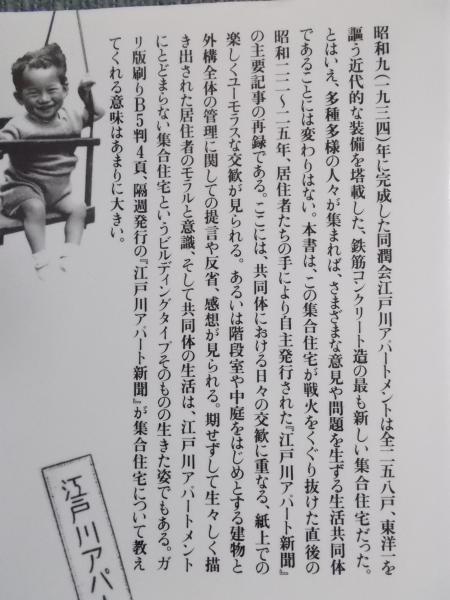 昭和九(一九三四)年に完成した同潤会江戸川アパートメントは全二五八戸、東洋一を
謳う近代的な装備を搭載した、鉄筋コンクリート造の最も新しい集合住宅だった。
とはいえ、多種多様の人々が集まれば、さまざまな意見や問題を生ずる生活共同体
であることには変わりはない。本書は、この集合住宅が戦火をくぐり抜けた直後の
昭和二二〜二五年、居住者たちの手により自主発行された『江戸川アパート新聞』
の主要記事の再録である。ここには、共同体における日々の交歓に重なる、紙上での
楽しくユーモラスな交歓が見られる。あるいは階段室や中庭をはじめとする建物と
外構全体の管理に関しての提言や反省、感想が見られる。期せずして生々しく描
き出された居住者のモラルと意識、そして共同体の生活は、江戸川アパートメント
にとどまらない集合住宅というビルディングタイプそのものの生きた姿でもある。ガ
リ版刷りB5判4頁、隔週発行の『江戸川アパート新聞』が集合住宅について教え
てくれる意味はあまりに大きい。
江戸川アパー